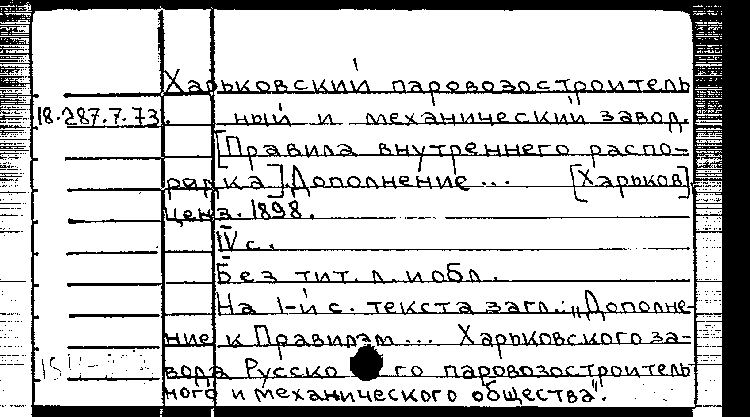 Харьковский паровозостроитель
18.287.7.73. ный и механический завод.
[Правила внутреннего распо-
рядка]. Дополнение ... [Харьков],
ценз. 1898.
IV с.
Без тит. л. и обл.
На 1-й с. текста загл.: „Дополне-
ние к Правилам ... Харьковского за-
вода Русско го паровозостроитель
ного и механического общества".